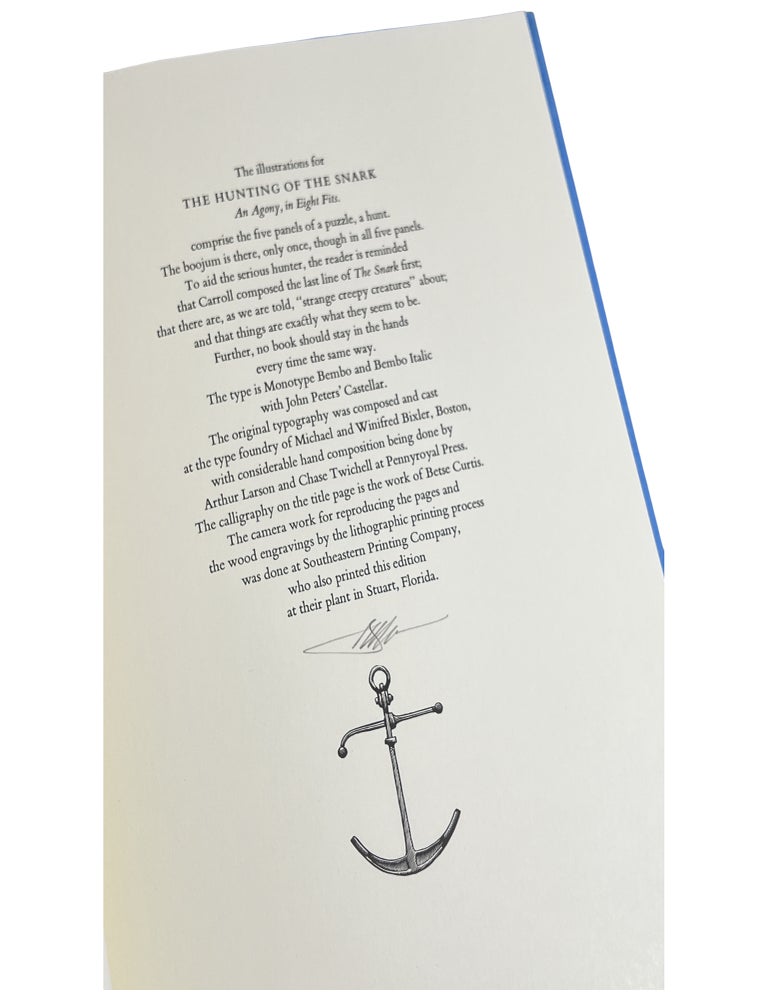 The illustrations for
THE HUNTING OF THE SNARK
An Agony, in Eight Fits.
comprise the five panels of a puzzle, a hunt.
The boojum is there, only once, though in all five panels.
To aid the serious hunter, the reader is reminded
that Carroll composed the last line of The Snark first;
that there are, as we are told, “strange creepy creatures” about;
and that things are exactly what they seem to be.
Further, no book should stay in the hands
every time the same way.
The type is Monotype Bembo and Bembo Italic
with John Peters’ Castellar.
The original typography was composed and cast
at the type foundry of Michael and Winifred Bixler, Boston,
with considerable hand composition being done by
Arthur Larson and Chase Twichell at Pennyroyal Press.
The calligraphy on the title page is the work of Betse Curtis.
The camera work for reproducing the pages and
the wood engravings by the lithographic printing process
was done at Southeastern Printing Company,
who also printed this edition
at their plant in Stuart, Florida.